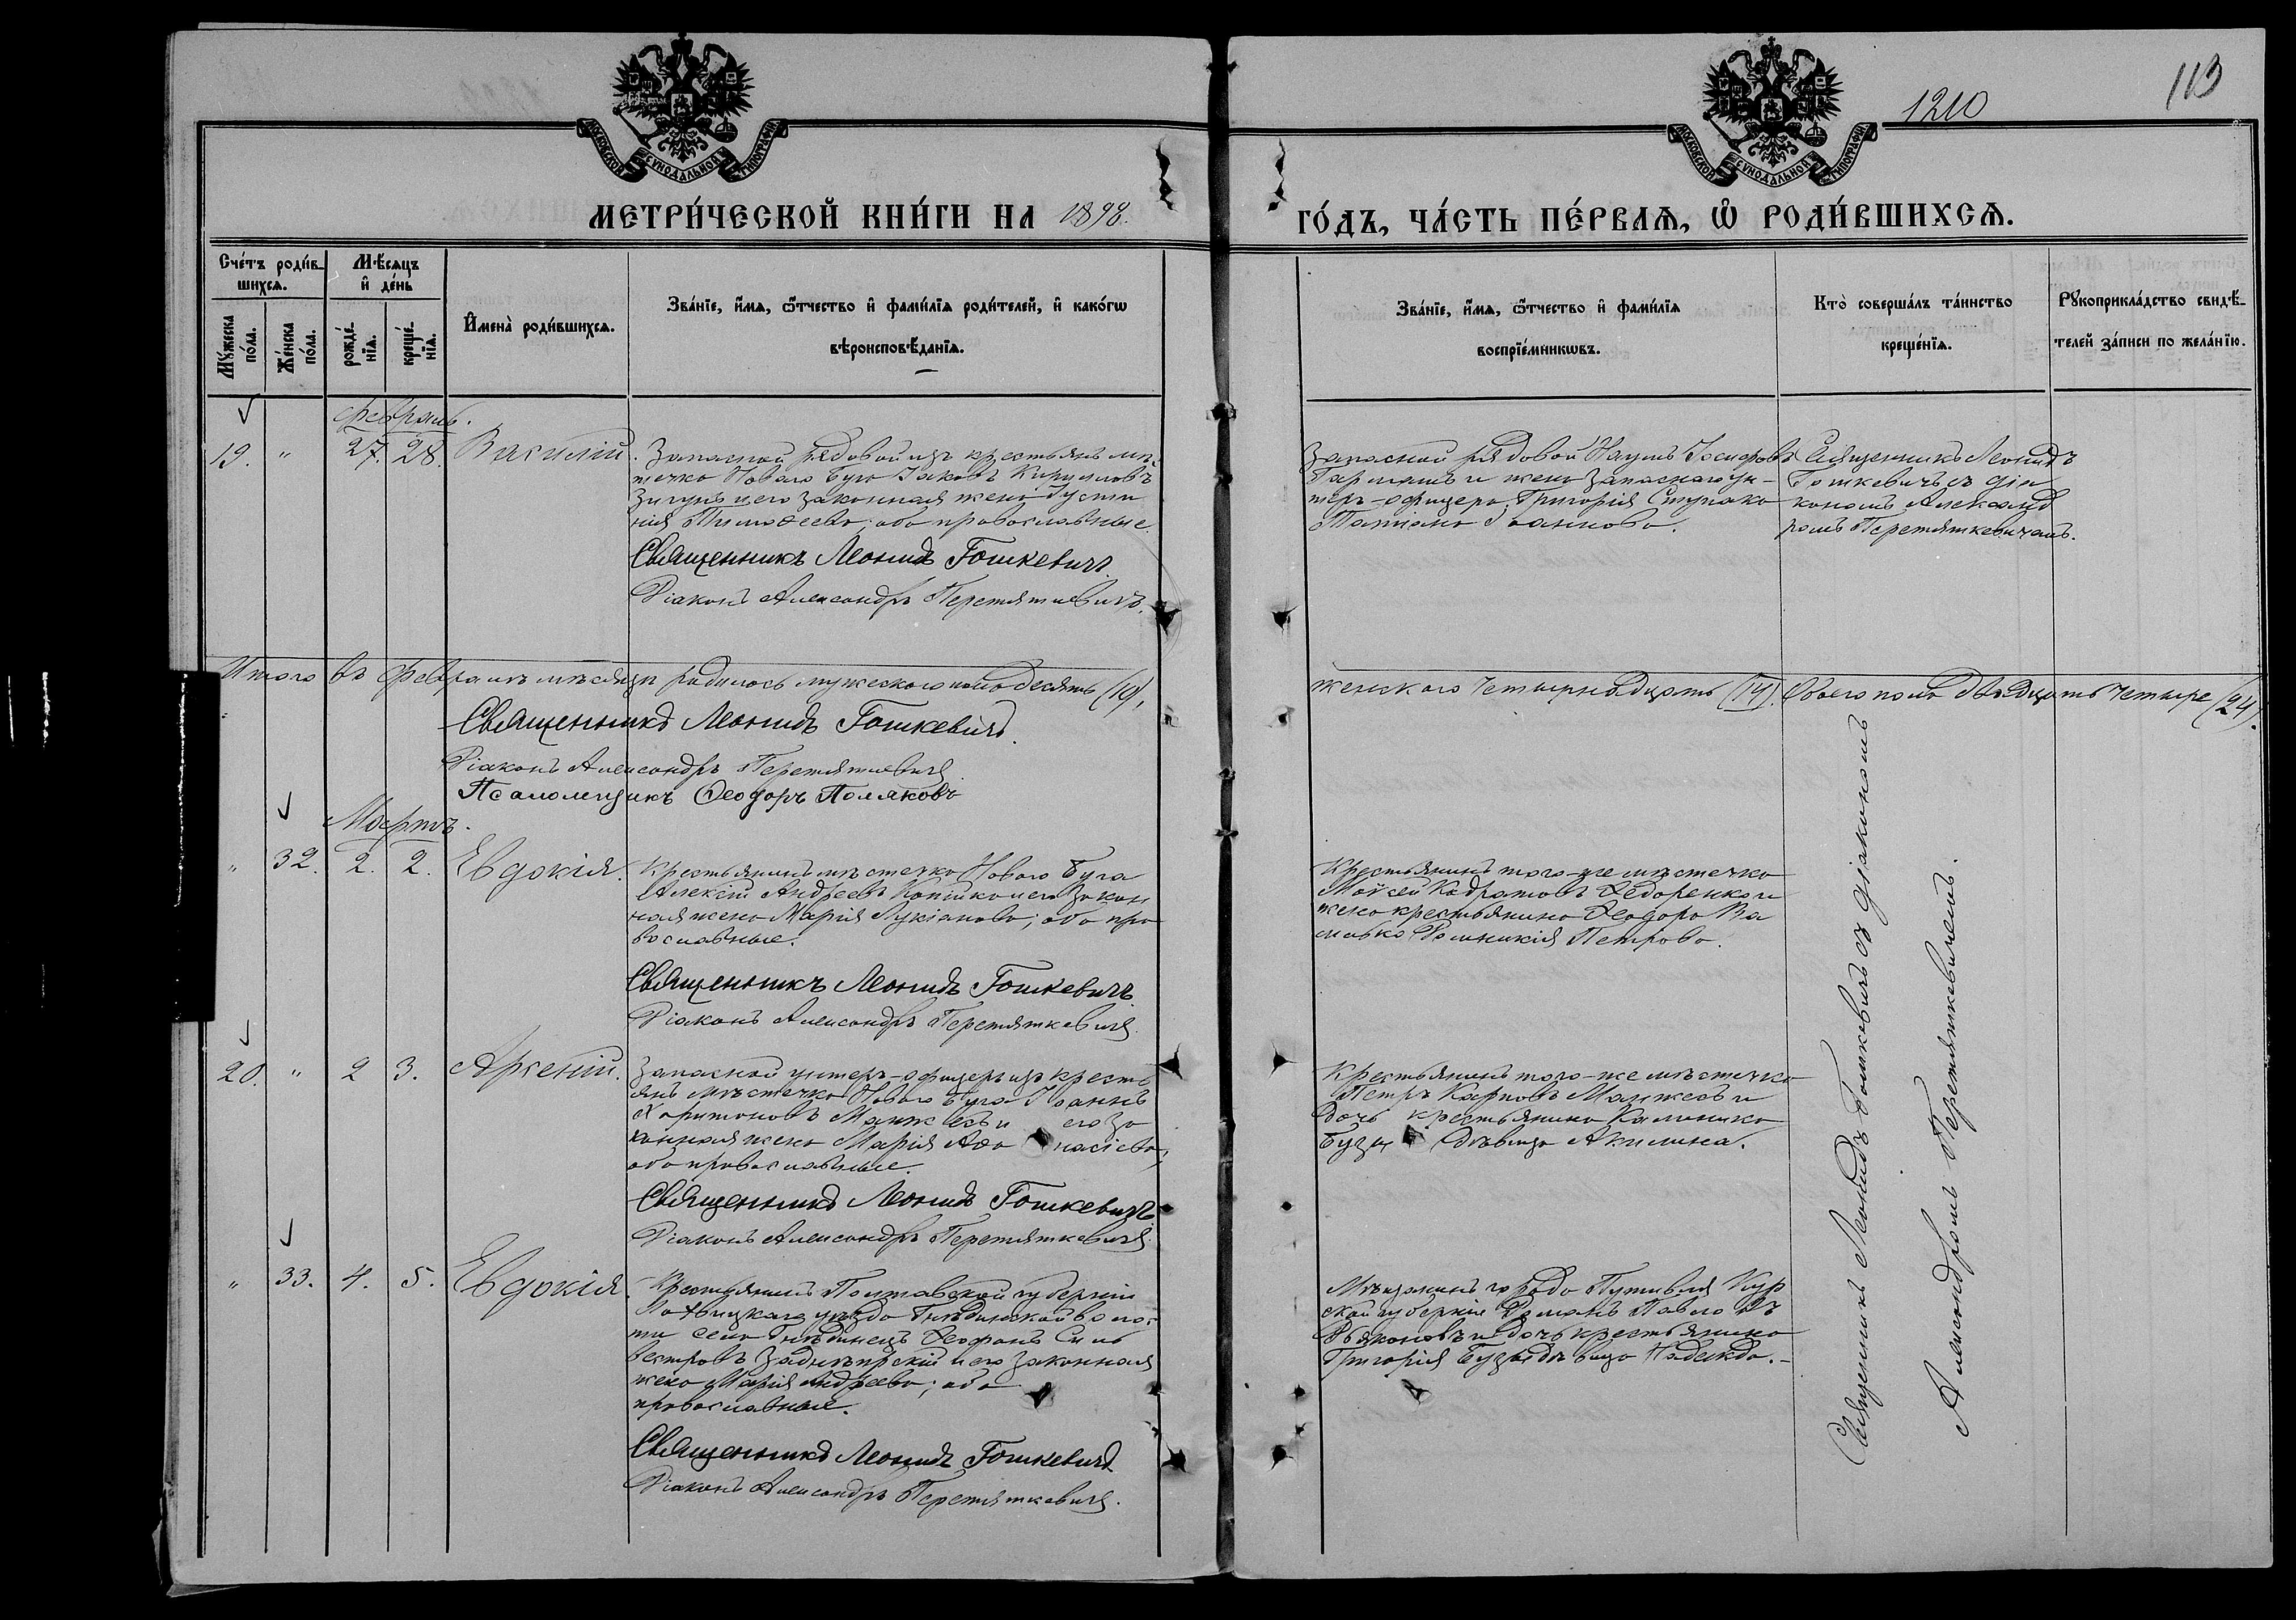 1210
113
МОСКОВСКОЙ СѴНОДАЛЬНОЙ ТИПОГРАФІИ
МОСКОВСКОЙ СѴНОДАЛЬНОЙ ТИПОГРАФІИ
МЕТРИ́ЧЕСКОЙ КНИ́ГИ НА 1898.
ГО́ДЪ, ЧА́СТЬ ПЕ́РВАѦ, Ѡ҆ РОДИ́ВШИХСѦ.
Сче́тъ роди́в-
шихсѧ.
Мѣ́сѧцъ
и҆ де́нь
Мꙋ́жеска
по́ла.
Же́нска
по́ла.
рожде́-
нїѧ.
креще́-
нїѧ.
И҆мена̀ роди́вшихсѧ.
Зва́нїе, и҆́мѧ, ѻ҆́тчество и҆ фами́лїѧ роди́телей, и҆ како́гѡ
вѣроисповѣ́данїѧ.
Зва́нїе, и҆́мѧ, ѻ҆́тчество и҆ фами́лїѧ
воспрїе́мникѡвъ.
Кто̀ соверша́лъ та́инство
креще́нїѧ.
Рꙋкоприкла́дство свидѣ́-
телей за́писи по жела́нїю.
Февраль.
19. " 27. 28. Василій.
Запасной рядовой изъ крестьянъ мѣ-
стечка Новаго Буга Іаковъ Кирилловъ
и его законная жена Іусти
нія Тимоѳеева; оба православные.
Священникъ Леонидъ Гошкевичъ.
Діаконъ Александръ Перетяткевичъ.
Запасной рядовой Наумъ Іосифовъ
и жена запаснаго ун-
теръ-офицера Григорія Ступака
Татіана Іоаннова.
Священникъ Леонидъ
Гошкевичъ съ діа
кономъ Александ
ромъ Перетяткевичемъ.
Итого въ Февралѣ мѣсяцѣ родилось мужескаго пола десять (10),
женскаго четырнадцать (14). Обоего пола двадцать четыре (24).
Священникъ Леонидъ Гошкевичъ.
Діаконъ Александръ Перетяткевичъ
Псаломщикъ Ѳеодоръ Поляковъ
Мартъ.
" 32. 2. 2. Евдокія.
Крестьянинъ мѣстечка Новаго Буга
Алексій Андреевъ и его закон
ная жена Марія Лукіанова; оба пра
вославные.
Священникъ Леонидъ Гошкевичъ.
Діаконъ Александръ Перетяткевичъ.
Крестьянинъ того-же мѣстечка
Моѵсей Кодратовъ Ѳедоренко и
жена крестьянина Ѳеодора Ва
силько Домникія Петрова.
20. " 2 3. Арсеній.
Запасной унтеръ-офицеръ изъ кресть
янъ мѣстечка Новаго Буга Іоаннъ
Харитоновъ Манжосъ и его за
конная жена Марія Аѳа насіева;
оба православные.
Священникъ Леонидъ Гошкевичъ
Діаконъ Александръ Перетяткевичъ.
Крестьянинъ того-же мѣстечка
Петръ Карповъ Манжосъ и
дочь крестьянина Калиника
дѣвица Акилина.
" 33. 4. 5. Евдокія.
Крестьянинъ Полтавской губерніи
Лохвицкаго уѣзда Гнѣдинской волос
ти села Гнѣдинецъ Ѳеофанъ Силь
вестровъ Заднѣпрскій и его законная
жена Марія Андреева; оба
православные.
Священникъ Леонидъ Гошкевичъ
Діаконъ Александръ Перетяткевичъ.
Мѣщанинъ города Путивля Кур
ской губерніи Романъ Павловъ
Дьяконовъ и дочь крестьянина
Григорія дѣвица Надежда.-
Священникъ Леонидъ Гошкевичъ съ діакономъ
Александромъ Перетяткевичемъ.